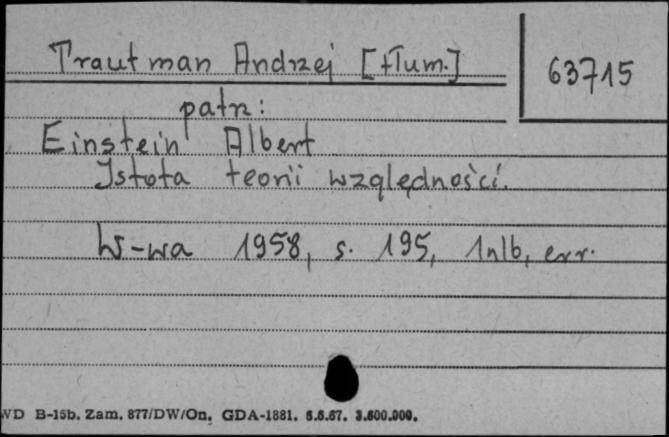 Trautman Andrzej [tłum.]
63715
patrz:
Einstein Albert
Istota teorii względności.
W-wa 1958, s. 195, 1nlb, err.
WD B-15b. Zam. 877/DW/On. GDA-1881. 6.6.67. 3.600.000.